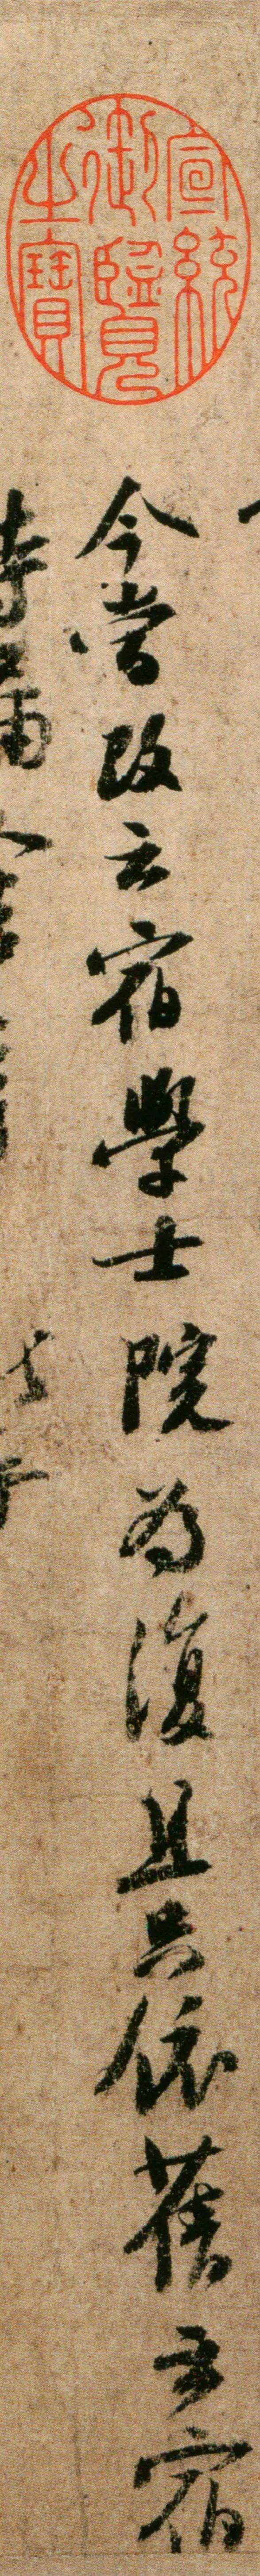 宣統
御覽
之寶
今當改云宿學士院為復且只依舊云宿